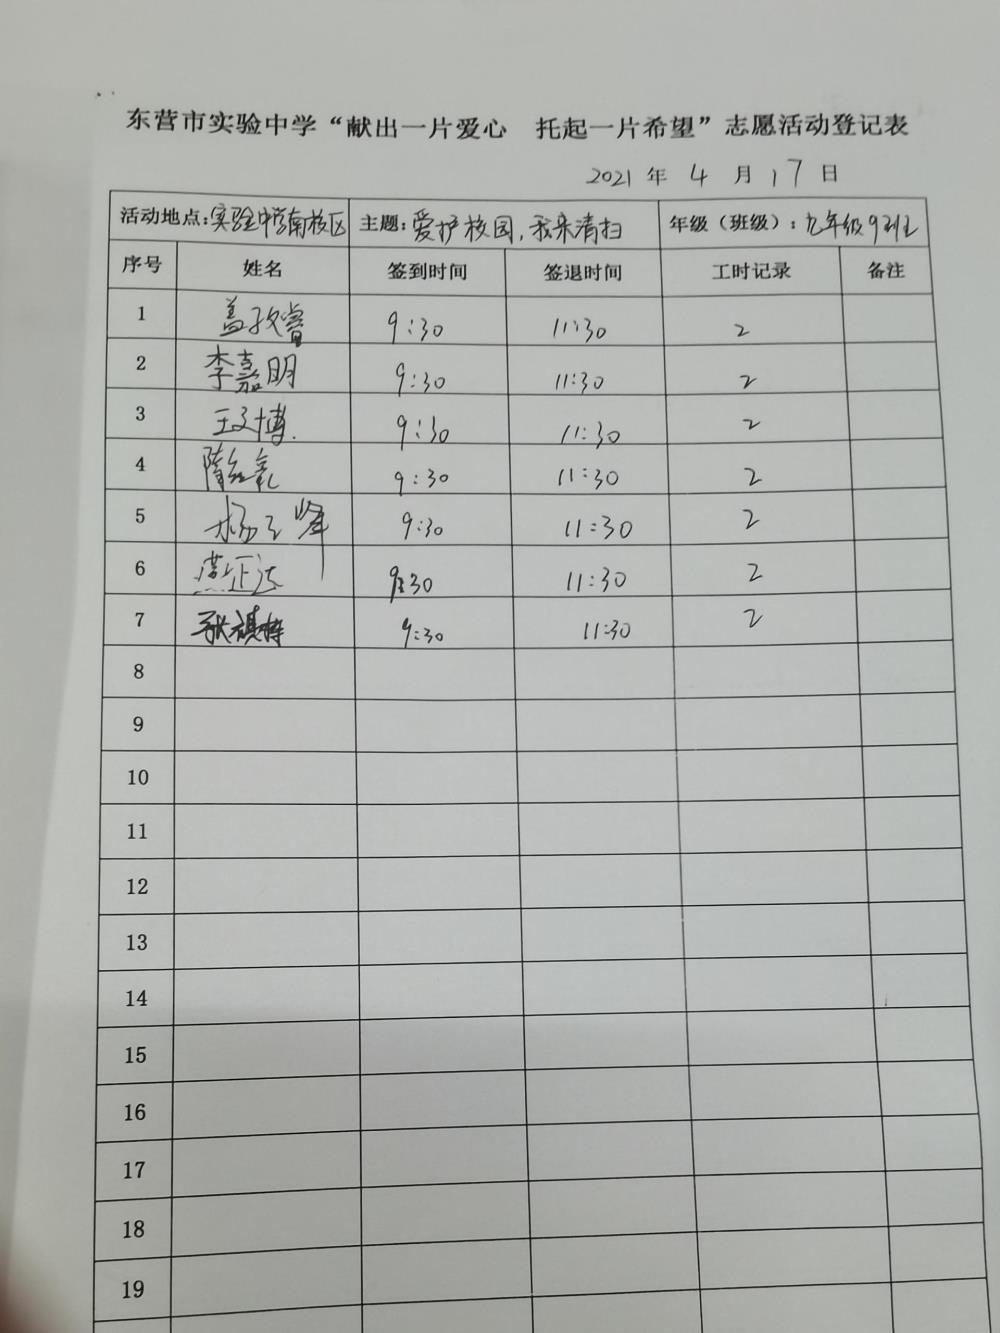 东营市实验中学“献出一片爱心 托起一片希望”志愿活动登记表
2021 年 4 月 17 日
活动地点:实验中学南校区 主题:爱护校园,我来清扫 年级(班级):九年级9班
序号 姓名 签到时间 签退时间 工时记录 备注
1 盖孜睿 9:30 11:30 2
2 李嘉明 9:30 11:30 2
3 王文博. 9:30 11:30 2
4 9:30 11:30 2
5 9:30 11:30 2
6 9:30 11:30 2
7 9:30 11:30 2
8
9
10
11
12
13
14
15
16
17
18
19